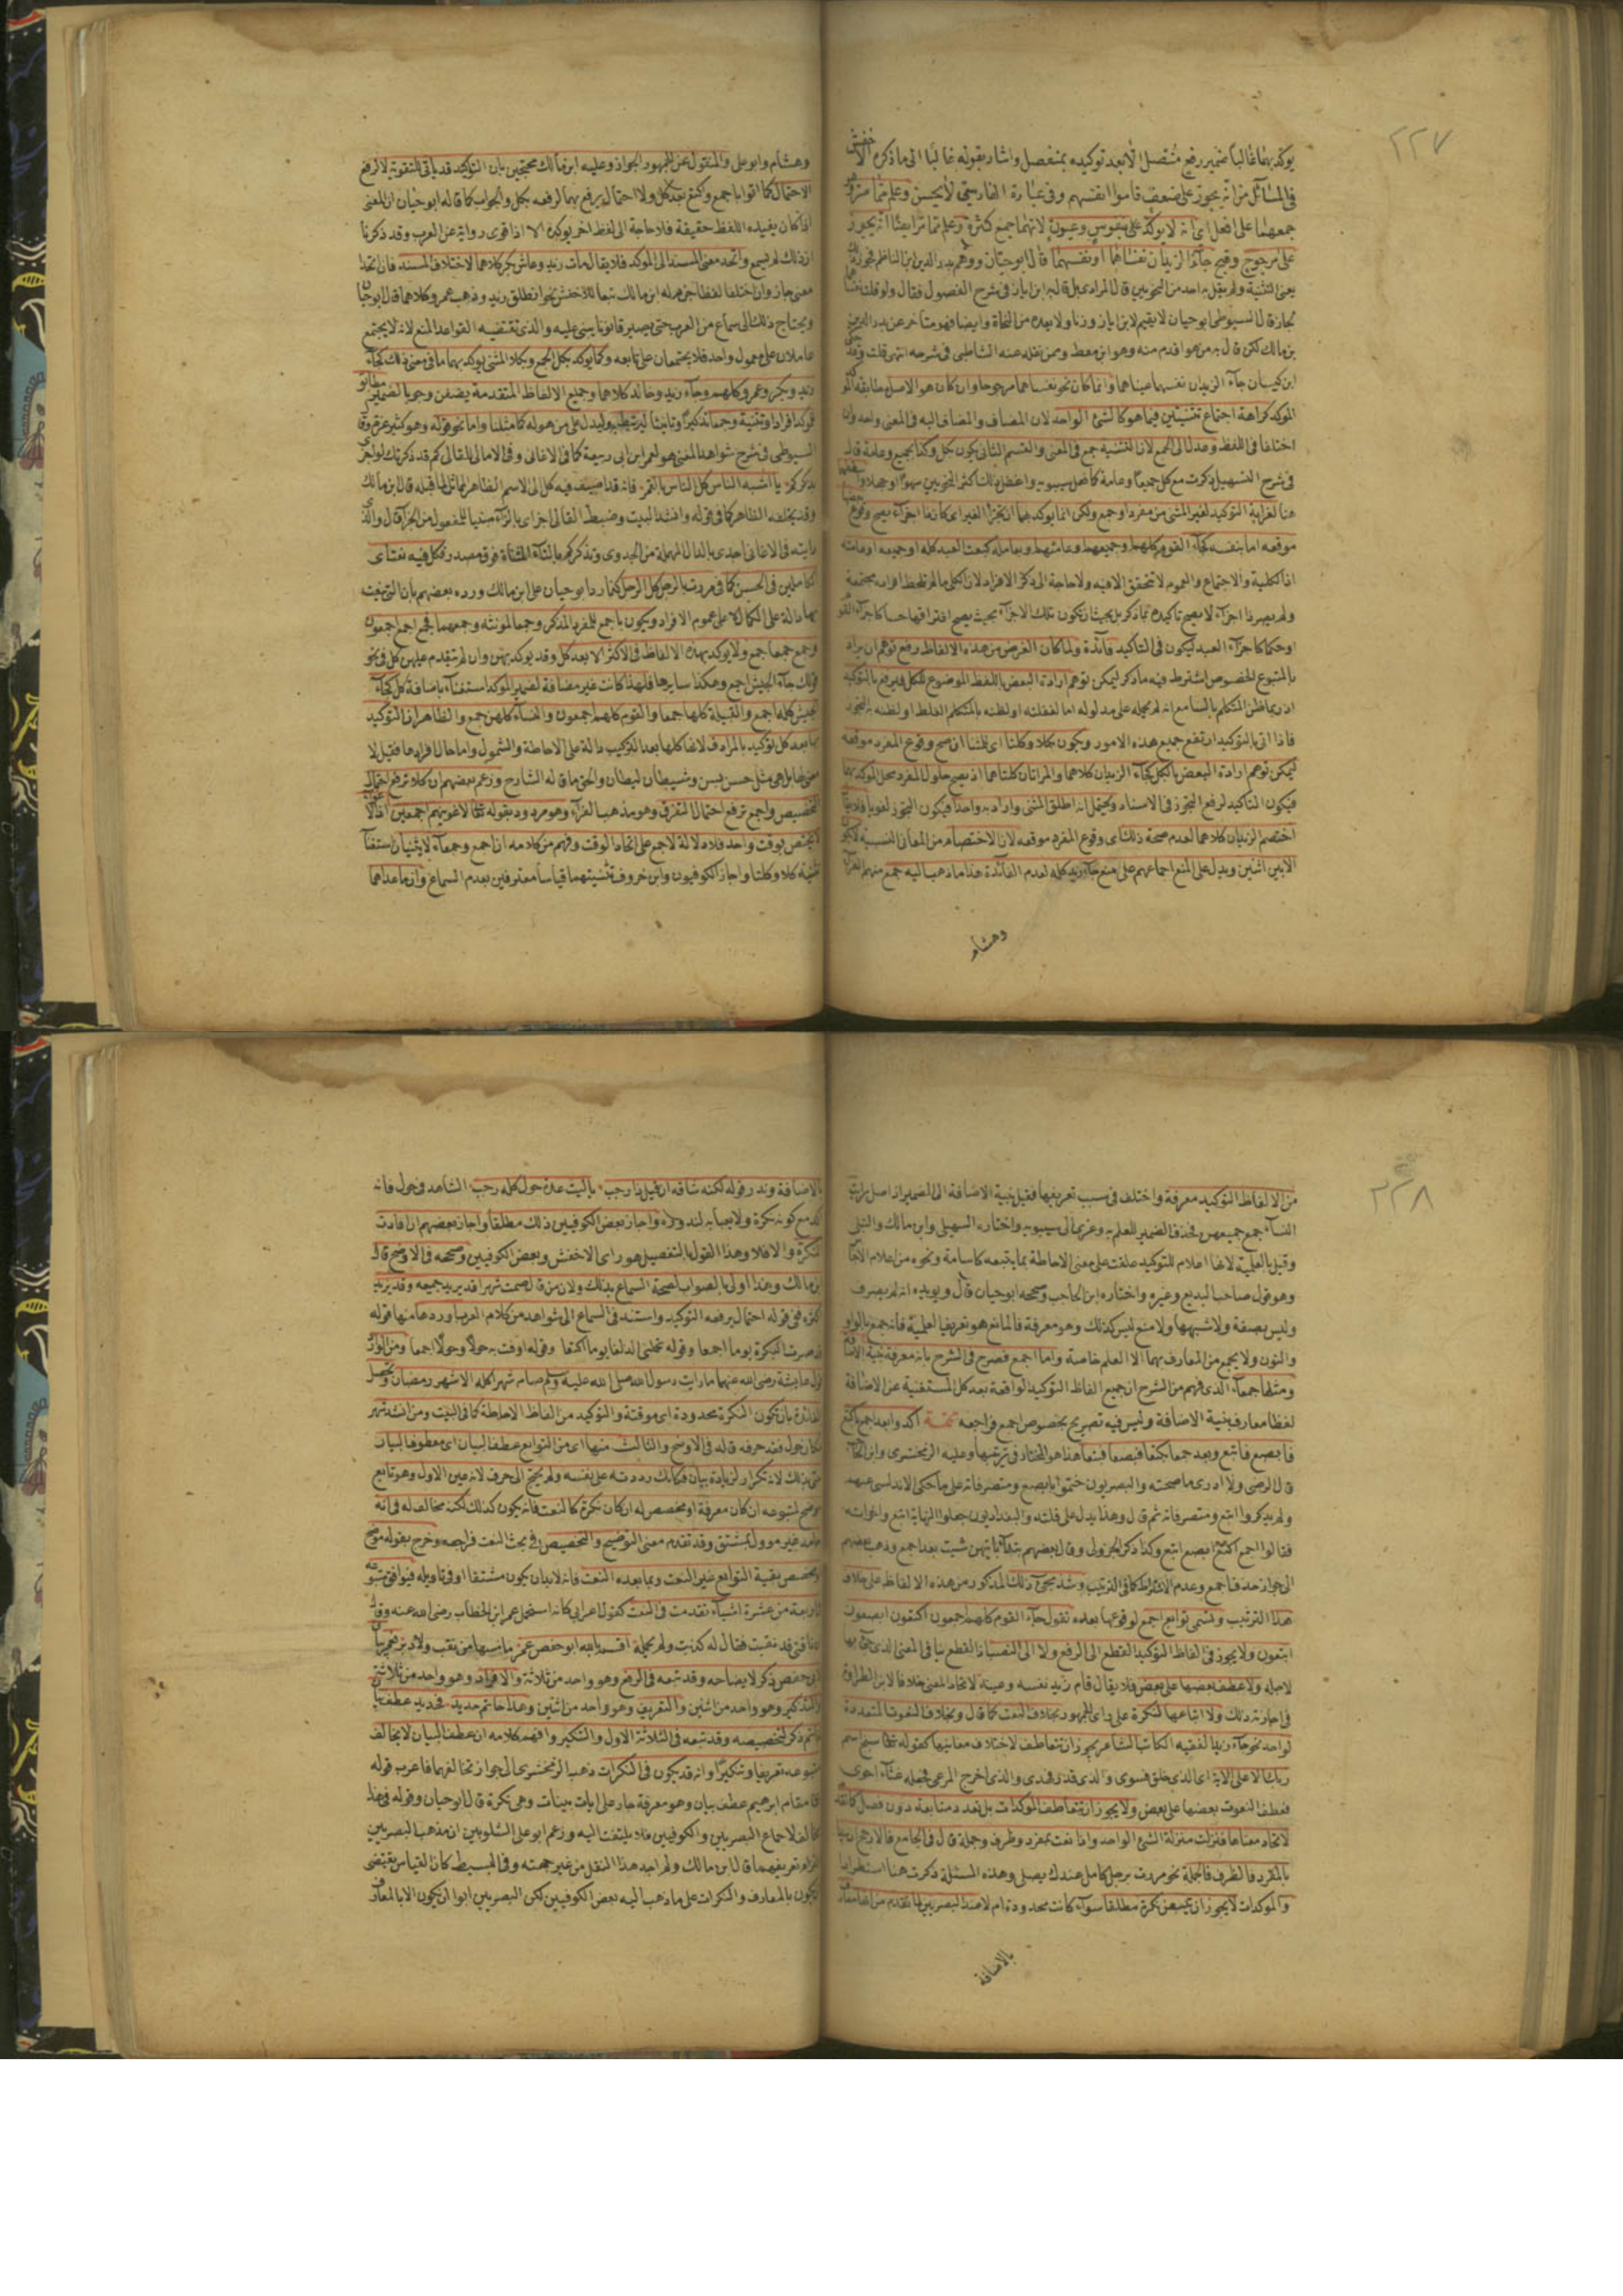 ٢٢٧
يؤكد بهما غالبا ضمير رفع متصل الا بعد توكيده بمنفصل واشار بقوله غالبا الى ما ذكره الاخفش
في المسائل من انه يجوز على ضعف قاموا انفسهم وفي عبارة الفارسي لا يحسن وعلم مما مر
جمعهما على افعل اي انه لا يؤكد على نفوس وعيون لانهما جمع كثرة وعلم مما مر ايضا انه يجوز
على مرجوح وقبح جاء الزيدان نفساهما او نفسهما قال ابو حيان ووهم بدر الدين ابن الناظم
يعني التثنية ولم يقل به احد من النحويين قال المرادي بل قال به ابن اياز في شرح الفصول فقال ولو قلت نفساهما
لجاز قال السيوطي ابو حيان لا يقيم لابن اياز وزنا ولا يعده من النحاة وايضا فهو متاخر عن بدر الدين
بن مالك لكن قال به من هو اقدم منه وهو ابن معط وممن نقله عنه الشاطبي في شرحه انتهى قلت
ابن كيسان جاء الزيدان نفسهما عيناهما وانما كان نحو نفساهما مرجوحا وان كان هو الاصل
المؤكد كراهة اجتماع تثنيتين فيما هو كالشئ الواحد لان المضاف والمضاف اليه في المعنى واحد وان
اختلفا في اللفظ وعدلا الى الجمع لان التثنية جمع في المعنى والقسم الثاني يكون بكل وكذا بجميع وعامة قال
في شرح التسهيل ذكرت مع كل جميعا وعامة كما فعل سيبويه واغفل ذلك اكثر النحويين سهوا او جهلا
هنا لغرابة التوكيد لغير المثنى من مفرد او جمع ولكن انما يؤكد بهما ان تجزأ الغير اي كان ذا اجزاء يصح وقوع
موقعه اما بنفسه كجاء القوم كلهم وجميعهم وعامتهم او بعامله كبعت العبد كله او جميعه او عامته
اذ الكلية والاجتماع والعموم لا تتحقق الا فيه ولا حاجة الى ذكر الافراد لان الكلي ما لم تلحظ افراده مجتمعة
ولم يصر ذا اجزاء لا يصح تاكيده بما ذكر بل بحيث ان تكون تلك الاجزاء بحيث يصح افتراقها حسا كاجزاء القوم
او حكما كاجزاء العبد ليكون في التاكيد فائدة ولما كان الغرض من هذه الالفاظ رفع توهم ان يراد
بالمتبوع الخصوص اشترط فيه ما ذكر ليمكن توهم ارادة البعض باللفظ الموضوع للكل فيرفع بالتوكيد
اذ ربما ظن المتكلم بالسامع انه لم يحمله على مدلوله اما لغفلته او لظنه بالمتكلم الغلط او لظنه به التجوز
فاذا اتى بالتوكيد اندفع جميع هذه الامور ويكون بكلا وكلتا اي للمثنى ان صح وقوع المفرد موقعه
ليمكن توهم ارادة البعض بالكل كجاء الزيدان كلاهما والمراتان كلتاهما اذ يصح حلول المفرد محل المؤكد بهما
فيكون التاكيد لرفع التجوز في الاسناد ويحتمل انه اطلق المثنى واراد به واحدا فيكون التجوز لغويا فلا يقال
اختصم الزيدان كلاهما لعدم صحة ذلك اي وقوع المفرد موقعه لان الاختصام من المعاني النسبية لا يكون
الا بين اثنين ويدل على المنع اجماعهم على منع جاء زيد كله لعدم الفائدة هذا ما ذهب اليه جمع منهم الفراء
وهشام
وهشام وابو على والمنقول عن الجمهور الجواز وعليه ابن مالك محتجين بان التوكيد قد ياتي للتقوية لا لرفع
الاحتمال كما اتوا باجمع واكتع بعد كل ولا احتمال يرفع بهما لرفعه بكل والجواب كما قاله ابو حيان ان المعنى
اذا كان يفيده اللفظ حقيقة فلا حاجة الى لفظ اخر يؤكده الا اذا قوى رواية عن العرب وقد ذكرنا
ان ذلك لم يسمع واتحد معنى المسند الى المؤكد فلا يقال مات زيد وعاش بكر كلاهما لاختلاف المسند فان اتحدا
معنى جاز وان اختلفا لفظا جزم به ابن مالك تبعا للاخفش نحو انطلق زيد وذهب عمرو كلاهما قال ابو حيان
ويحتاج ذلك الى سماع من العرب حتى يصير قانونا يبنى عليه والذي تقتضيه القواعد المنع لانه لا يجتمع
عاملان على معمول واحد فلا يجتمعان على تابعه وكما يؤكد بكل الجمع وبكلا المثنى يؤكد بهما ما في معنى ذلك كجاء
زيد وبكر وعمرو كلهم وجاء زيد وخالد كلاهما وجميع الالفاظ المتقدمة يضفن وجوبا لضمير مطابق
للمؤكد افرادا وتثنية وجمعا تذكيرا وتانيثا ليرتبط به وليدل على من هو له كما مثلنا واما نحو قوله وهو كثير عزة وقال
السيوطي في شرح شواهد المغني هو لعمر ابن ابي ربيعة كما في الاغاني وفي الامالي للقالي كم قد ذكرتك لو اجزى
بذكركم • يا اشبه الناس كل الناس بالقمر • فانه قد اضيف فيه كل الى الاسم الظاهر مماثل لما قبله قال ابن مالك
وقد يخلفه الظاهر كما في قوله وانشد البيت وضبط القالي اجزى بالزاء مبنيا للمفعول من الجزاء قال والذي
رايته في الاغاني اجدى بالدال المهملة من الجدوى وتذكركم بالتاء المثناة فوق مصدر فكل فيه نعت اي
الكاملين في الحسن كما في مررت بالرجل كل الرجل كذا رد ابو حيان على ابن مالك ورده بعضهم بان التي ينعت
بها دالة على الكمال لا على عموم الافراد ويكون باجمع للمفرد المذكر وجمعا لمؤنثه وجمعهما فجمع اجمع اجمعون
وجمع جمعا جمع ولا يؤكد بهذه الالفاظ في الاكثر الا بعد كل وقد يؤكد بهن وان لم يتقدم عليهن كل في نحو
قولك جاء الجيش اجمع وهكذا سايرها فلهذا كانت غير مضافة لضمير المؤكد استغناء باضافة كل كجاء
الجيش كله اجمع والقبيلة كلها جمعا والقوم كلهم اجمعون والنساء كلهن جمع والظاهر ان التوكيد
بها بعد كل توكيد بالمرادف لانها كلها بعد التركيب دالة على الاحاطة والشمول واما حال افرادها فقيل لا
معنى لها بل هي مثل حسن بسن وشيطان ليطان والحق ما قاله الشارح وزعم بعضهم ان كلا ترفع احتمال
التخصيص واجمع ترفع احتمال التفرق وهو مذهب الفراء وهو مردود بقوله تعالى لاغوينهم اجمعين اذ الاغواء
لا يختص بوقت واحد فلا دلالة لاجمع على اتحاد الوقت وفهم من كلامه ان اجمع وجمعاء لا يثنيان استغناء
بتثنية كلا وكلتا واجاز الكوفيون وابن خروف تثنيتهما قياسا معترفين بعدم السماع وان ما عداهما
٢٢٨
من الالفاظ التوكيد معرفة واختلف في سبب تعريفها فقيل بنية الاضافة الى الضمير اذ اصل رايت
النساء جمع جميعهن فحذف الضمير للعلم به وعزى الى سيبويه واختاره السهيلي وابن مالك
وقيل بالعلمية لانها اعلام للتوكيد علقت على معنى الاحاطة بما يتبعه كاسامة ونحوه من اعلام الاجناس
وهو قول صاحب البديع وغيره واختاره ابن الحاجب وصححه ابو حيان قال ويؤيده انه لم يصرف
وليس بصفة ولا شبهها ولا منع ليس كذلك وهو معرفة فالمانع هو تعريف العلمية فانه جمع بالواو
والنون ولا يجمع من المعارف بهما الا العلم خاصة واما اجمع فصرح في الشرح بانه معرفة بنية الاضافة
ومثلها جمعاء الذي فهم من الشرح ان جميع الفاظ التوكيد الواقعة بعد كل المستغنية عن الاضافة
لفظا معارف بنية الاضافة وليس فيه تصريح بخصوص اجمع فراجعه تتمة اكدوا بعد اجمع باكتع
فابصع فابتع وبعد جمعا بكتعا فبصعا فبتعا هذا هو المختار في ترتيبها وعليه الزمخشري
قال الرضي ولا ادري ما صحته والبصريون ختموا بابصع ومتصرفاته على ما حكى الاندلسي عنهم
ولم يذكروا ابتع ومتصرفاته ثم قال وهذا يدل على قلته والبغداديون جعلوا النهاية ابتع واخواته
فقالوا اجمع اكتع ابصع ابتع وكذا ذكر الجزولي وقال بعضهم تبدأ بايتهن شئت بعد اجمع وذهب بعضهم
الى جواز حذف اجمع وعدم الاشتراط كما في الترتيب وشذ مجئ ذلك المذكور من هذه الالفاظ على خلاف
هذا الترتيب وتسمى توابع اجمع لوقوعها بعده تقول جاء القوم كلهم اجمعون اكتعون ابصعون
ابتعون ولا يجوز في الفاظ التوكيد القطع الى الرفع ولا الى النصب اذ القطع ينافي المعنى الذي جئ بها
لاجله ولا عطف بعضها على بعض فلا يقال قام زيد نفسه وعينه لاتحاد المعنى خلافا لابن الطراوة
في اجازة ذلك ولا اتباعها النكرة على راي الجمهور بخلاف النعت كما قال وبخلاف النعوت المتعددة
لواحد نحو جاء زيد الفقيه الكاتب الشاعر يجوز ان تتعاطف لاختلاف معانيها كقوله تعالى سبح اسم
ربك الاعلى الآية اي الذي خلق فسوى والذي قدر فهدى والذي اخرج المرعى فجعله غثاء احوى
فعطف النعوت بعضها على بعض ولا يجوز ان تتعاطف المؤكدات بل تعد متتابعة دون فصل
لاتحاد معناها فنزلت منزلة الشئ الواحد واذا نعت بمفرد وظرف وجملة قال في الجامع فالارجح
بالمفرد فالظرف فالجملة نحو مررت برجل كامل عندك يصلي وهذه المسئلة ذكرت هنا استطرادا
والمؤكدات لا يجوز ان يتبعن نكرة مطلقا سواء كانت محدودة ام لا عند البصريين لما تقدم من انها معارف
بالاضافة
بالاضافة وندر قوله لكنه شاقه ان قيل ذا رجب • ياليت عدة حول كله رجب • الشاهد في حول فانه
اكد مع كونه نكرة ولا يعبأ به لندوره واجاز بعض الكوفيين ذلك مطلقا واجاز بعضهم ان افادت
النكرة والا فلا وهذا القول بالتفصيل هو راي الاخفش وبعض الكوفيين وصححه في الاوضح قال
ابن مالك وهذا اولى بالصواب لصحة السماع بذلك ولان من قال صمت شهرا قد يريد جميعه وقد يريد
اكثره ففي قوله احتمال يرفعه التوكيد واستند في السماع الى شواهد من كلام العرب اوردها منها قوله
قد صرت البكرة يوما اجمعا وقوله تحملني الذلفا يوما اكتعا وقوله اوفت به حولا وحولا اجمعا ومن الوارد
قول عايشة رضى الله عنها ما رايت رسول الله صلى الله عليه وسلم صام شهرا كله الا شهر رمضان وتحصل
الفائدة بان تكون النكرة محدودة اي موقتة والتوكيد من الفاظ الاحاطة كما في البيت ومن انشد شهر
مكان حول فقد حرفه قاله في الاوضح والثالث منها اي من التوابع عطف البيان اي معطوف البيان
سمى بذلك لانه تكرار لزيادة بيان فكانك رددته على نفسه ولم يحتج الى حرف لانه عين الاول وهو تابع
موضح لمتبوعه ان كان معرفة او مخصص له ان كان نكرة كالنعت فانه يكون كذلك لكنه مخالف له في انه
جامد غير مؤول بمشتق وقد تقدم معنى التوضيح والتخصيص في بحث النعت فراجعه وخرج بقوله موضح
او مخصص بقية التوابع غير النعت وبما بعده النعت فانه لابد ان يكون مشتقا او في تاويله فيوافق متبوعه
في اربعة من عشرة اشياء تقدمت في النعت كقول اعرابي كانه استحمل عمر ابن الخطاب رضى الله عنه وقال
ان ناقتي قد نقبت فقال له كذبت ولم يحمله اقسم بالله ابو حفص عمر ما مسها من نقب ولا دبر فعمر بيان
لابي حفص ذكر لايضاحه وقد تبعه في الرفع وهو واحد من ثلاثة والافراد وهو واحد من ثلاثة
والتذكير وهو واحد من اثنين والتعريف وهو واحد من اثنين وهذا خاتم حديد فحديد عطف بيان
لخاتم ذكر لتخصيصه وقد تبعه في الثلاثة الاول والتنكير وافهم كلامه ان عطف البيان لا يخالف
متبوعه تعريفا وتنكيرا وانه قد يكون في النكرات وذهب الزمخشري الى جواز تخالفهما فاعرب قوله
تعالى مقام ابرهيم عطف بيان وهو معرفة جار على ايات بينات وهي نكرة قال ابو حيان وقوله في هذا
مخالف لاجماع البصريين والكوفيين فلا يلتفت اليه وزعم ابو على الشلوبين ان مذهب البصريين
التزام تعريفهما قال ابن مالك ولم اجد هذا النقل من غير جهته وفي البسيط كان القياس يقتضى
ان يكون بالمعارف والنكرات على ما ذهب اليه بعض الكوفيين لكن البصريين ابوا ان يكون الا بالمعارف